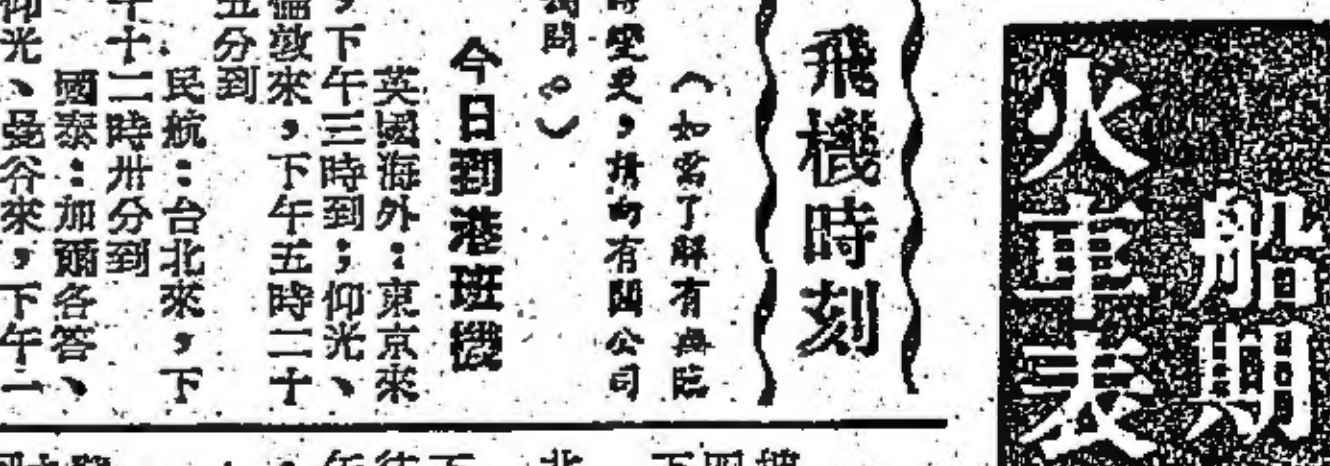 船期
火車表
飛機時刻
（如需了解有無臨
時變更，請向有關公司
詢問。）
今日到港班機
英國海外：東京來
，下午三時到；仰光、
倫敦來，下午五時二十
五分到
民航：台北來，下
午十二時卅分到
國泰：加爾各答、
仰光、曼谷來，下午一